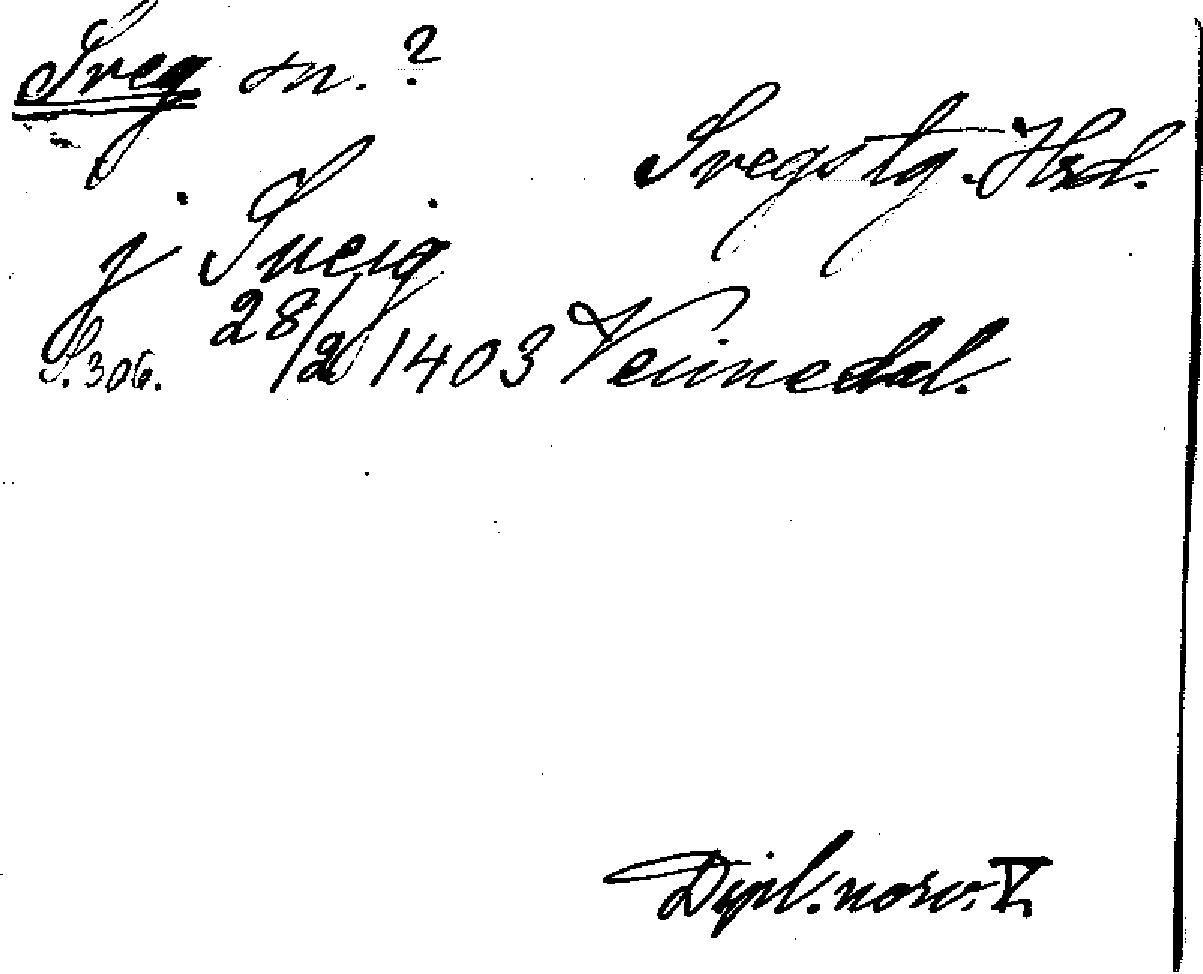 Sveg sn. ?
Svegs tg. Hrd.
j Sueig
S. 306. 28/2 1403 Veimedal.
Dipl. norv. V.